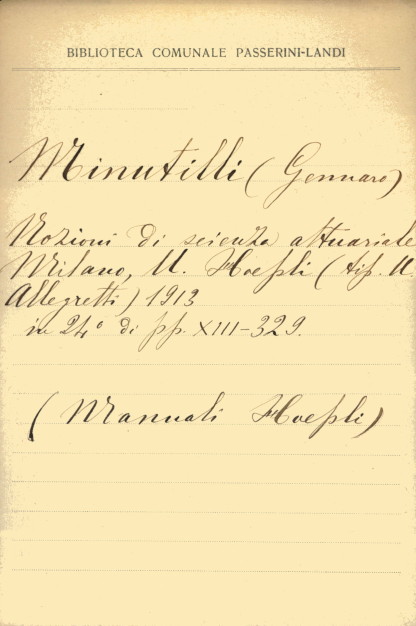 BIBLIOTECA COMUNALE PASSERINI-LANDI
Minutilli (Gennaro)
Nozioni di scienza attuariale
Milano, U. Hoepli (tip. U.
Allegretti) 1913
in 24° di pp. XIII-329.
(Manuali Hoepli)